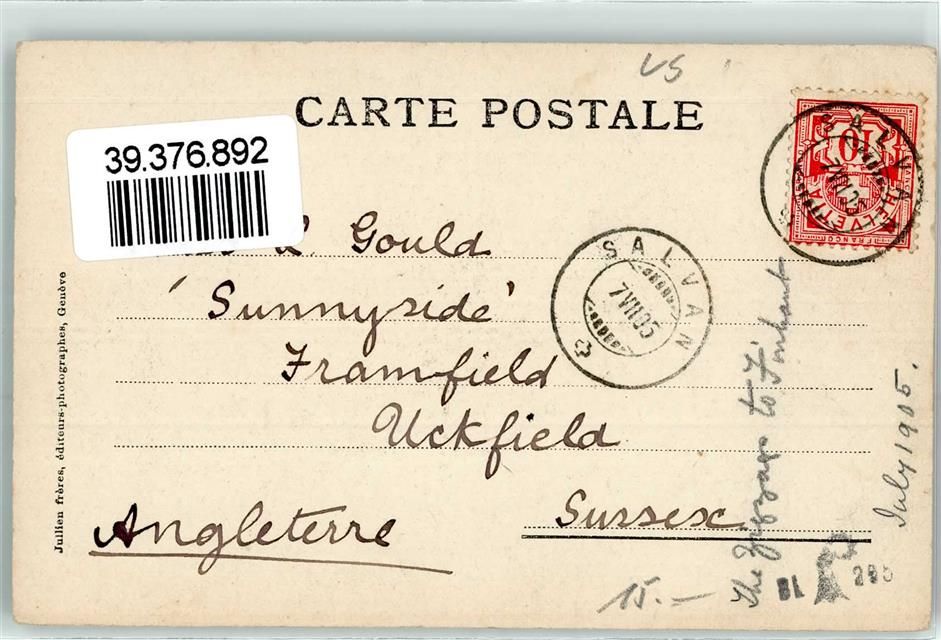 VS
CARTE POSTALE
39.376.892
L. Gould
'Sunnyside'
Framfield
Uckfield
Sussex
Angleterre
SALVAN
7 VII 05
SALVAN
HELVETIA
10
FRANCO
Jullien frères, éditeurs-photographes, Genève
The Zigzags to Finhaut
July 1905.
15.—